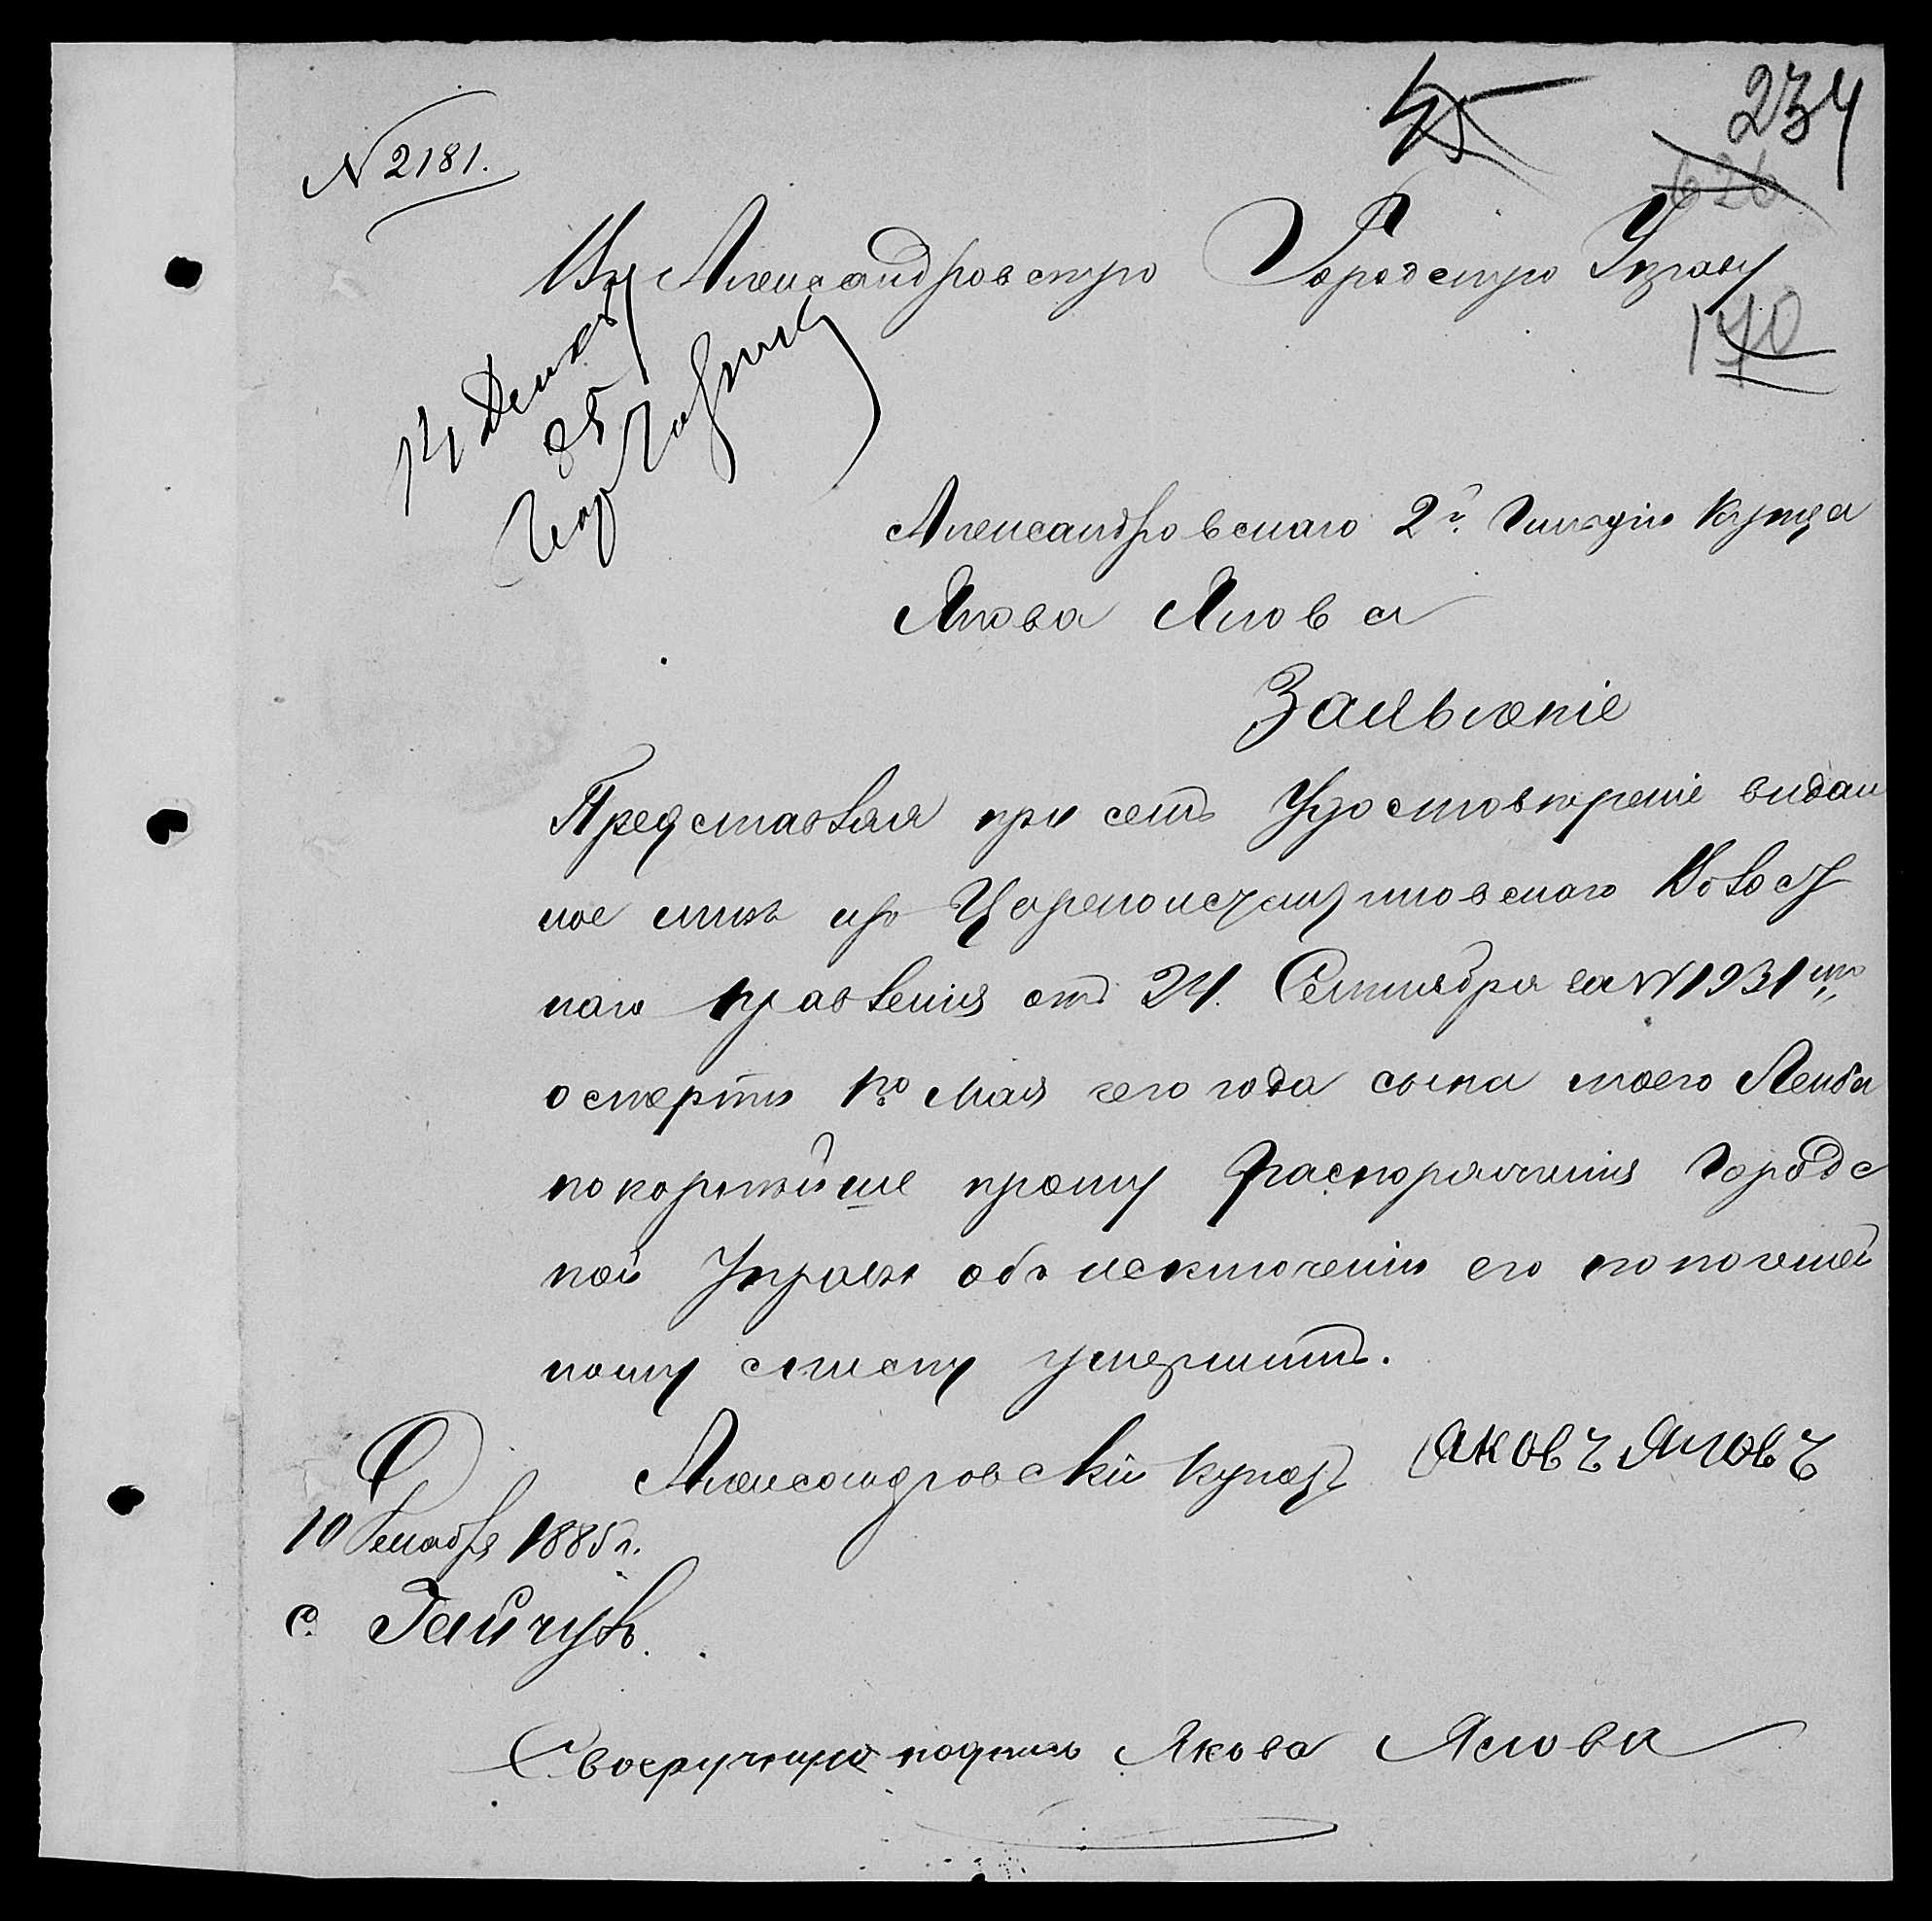 45
234
626
№ 2181.
Въ Александровскую Городскую Управу
170
14 Декаб
85
Александровскаго 2й Гильдіи Купца
Якова Ямова
Заявленіе
Представляя при семъ Удостовѣреніе видан
ное мнѣ изъ Цареконстантиновскаго Волост
наго правленія отъ 24. Сентября за № 1931мъ
о смерти 1го Мая сего года сына моего Лейба
покорнѣйше прошу распоряженія Городс
кой Управы объ исключеніи его по посемей
ному списку умершимъ.
Александровскій купецъ Яковъ Ямовъ
10 Декабря 1885 г.
с. Гайчуръ.
Своеручную подпись Якова Ямова